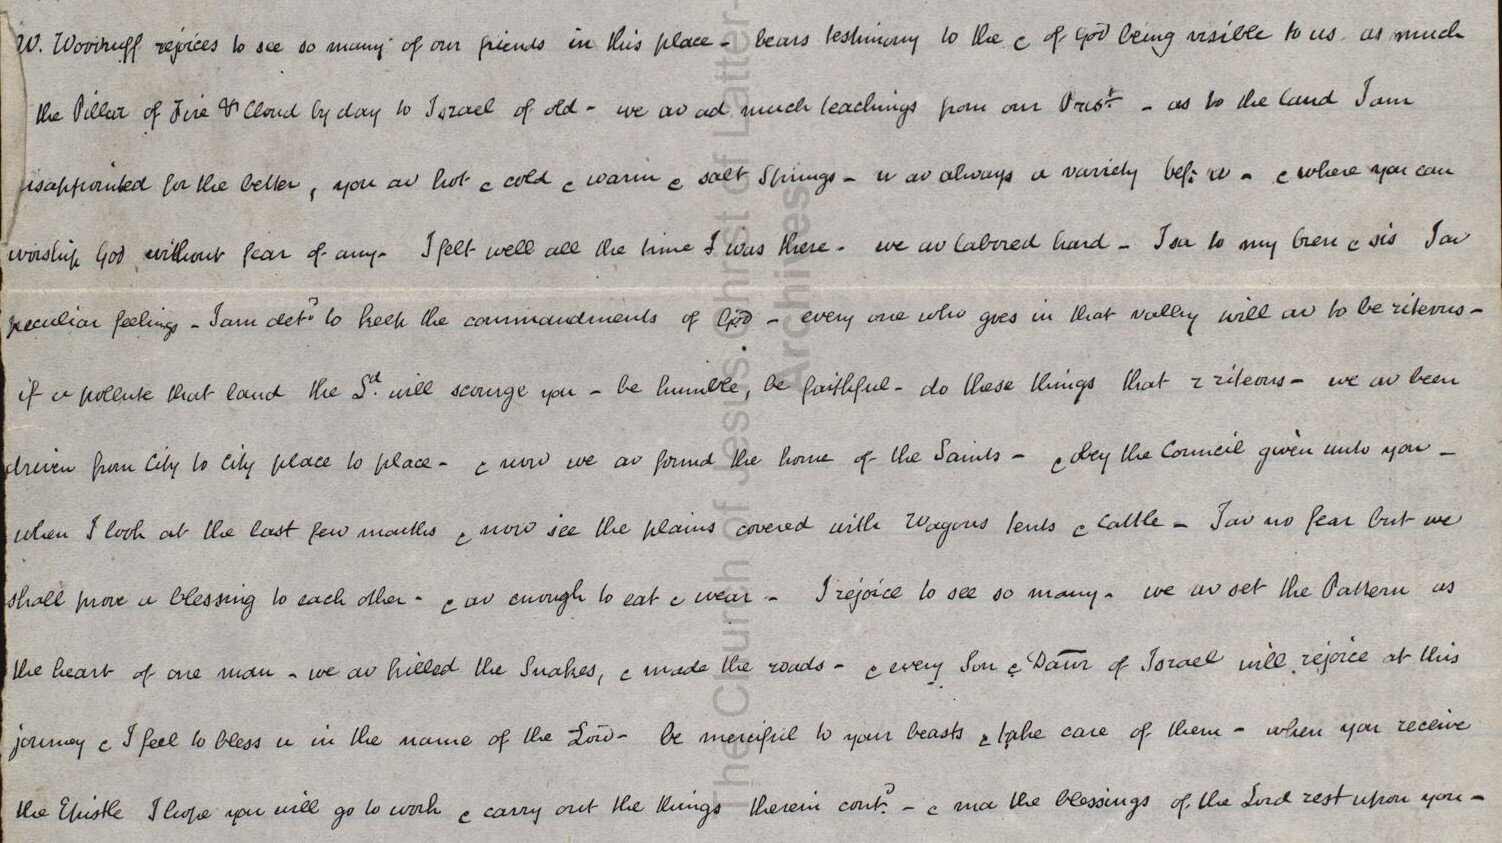 W. Woodruff rejoices to see so many of our friends in this place - bears testimony to the c of God being visible to us as much
the Pillar of Fire & Cloud by day to Israel of old - we av ad much teachings from our Prest - as to the land I am
isappointed for the better, you av hot c cold c warm c salt Springs - u av always a variety bef: u - c where you can
worship God without fear of any - I felt well all the time I was there - we av labored hard - I sa to my bren c sis I av
peculiar feelings - I am detd to keep the commandments of God - every one who goes in that valley will av to be riteous -
if u pollute that land the Ld. will scourge you - be humble, be faithful - do those things that r riteous - we av been
driven from City to City place to place - c now we av found the home of the Saints - c obey the Council given unto you -
when I look at the last few months c now see the plains covered with Wagons tents c Cattle - I av no fear but we
shall prove a blessing to each other - c av enough to eat c wear - I rejoice to see so many - we av set the Pattern as
the heart of one man - we av killed the Snakes, c made the roads - c every Son c Daur of Israel will rejoice at this
journey c I feel to bless u in the name of the Lord - be merciful to your beasts c take care of them - when you receive
the Epistle I hope you will go to work c carry out the things therein contd. - c ma the blessings of the Lord rest upon you -
The Church of Jesus Christ of Latter-
Archives